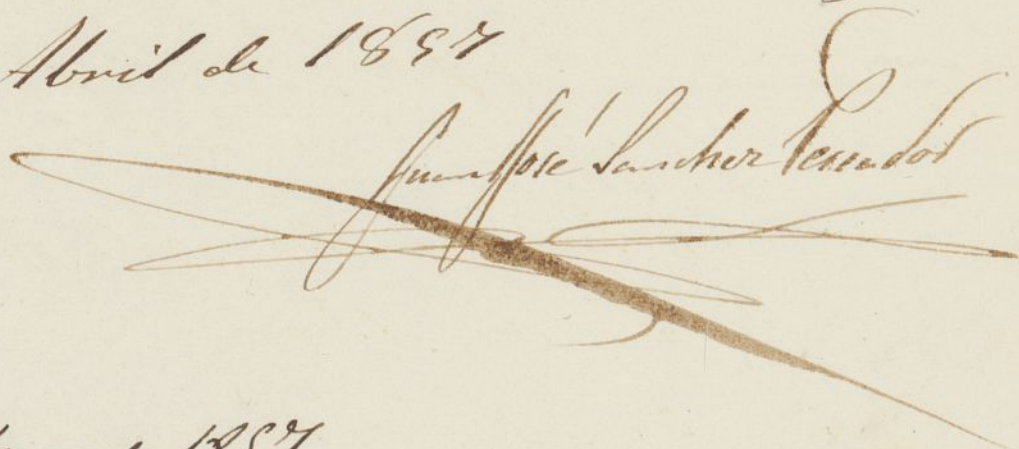 Abril de 1857
Juan José Sanchez Pescador
de 1857